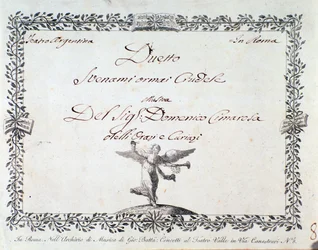 Teatro Argentina In Roma
Duetto
Svenami ormai Crudele
Musica
Del Sig.r Domenico Cimarosa
In Roma Nell'Archivio di Musica di Gio. Batta. Cencetti al Teatro Valle in Via Canestrari N.º